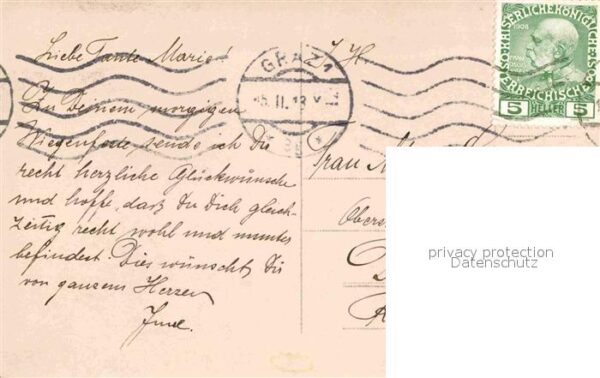 Liebe Tante Marie!
Zu Deinem morgigen
Wiegenfeste sende ich Dir
recht herzliche Glückwünsche
und hoffe, daß Du Dich gleich-
zeitig recht wohl und munter
befindest. Dies wünscht Dir
von ganzem Herzen
I. H.
GRAZ 1
5. II. 13
1908
KAISERLICHE KÖNIGLICHE
ÖSTERREICHISCHE
5 HELLER 5
Frau
privacy protection
Datenschutz